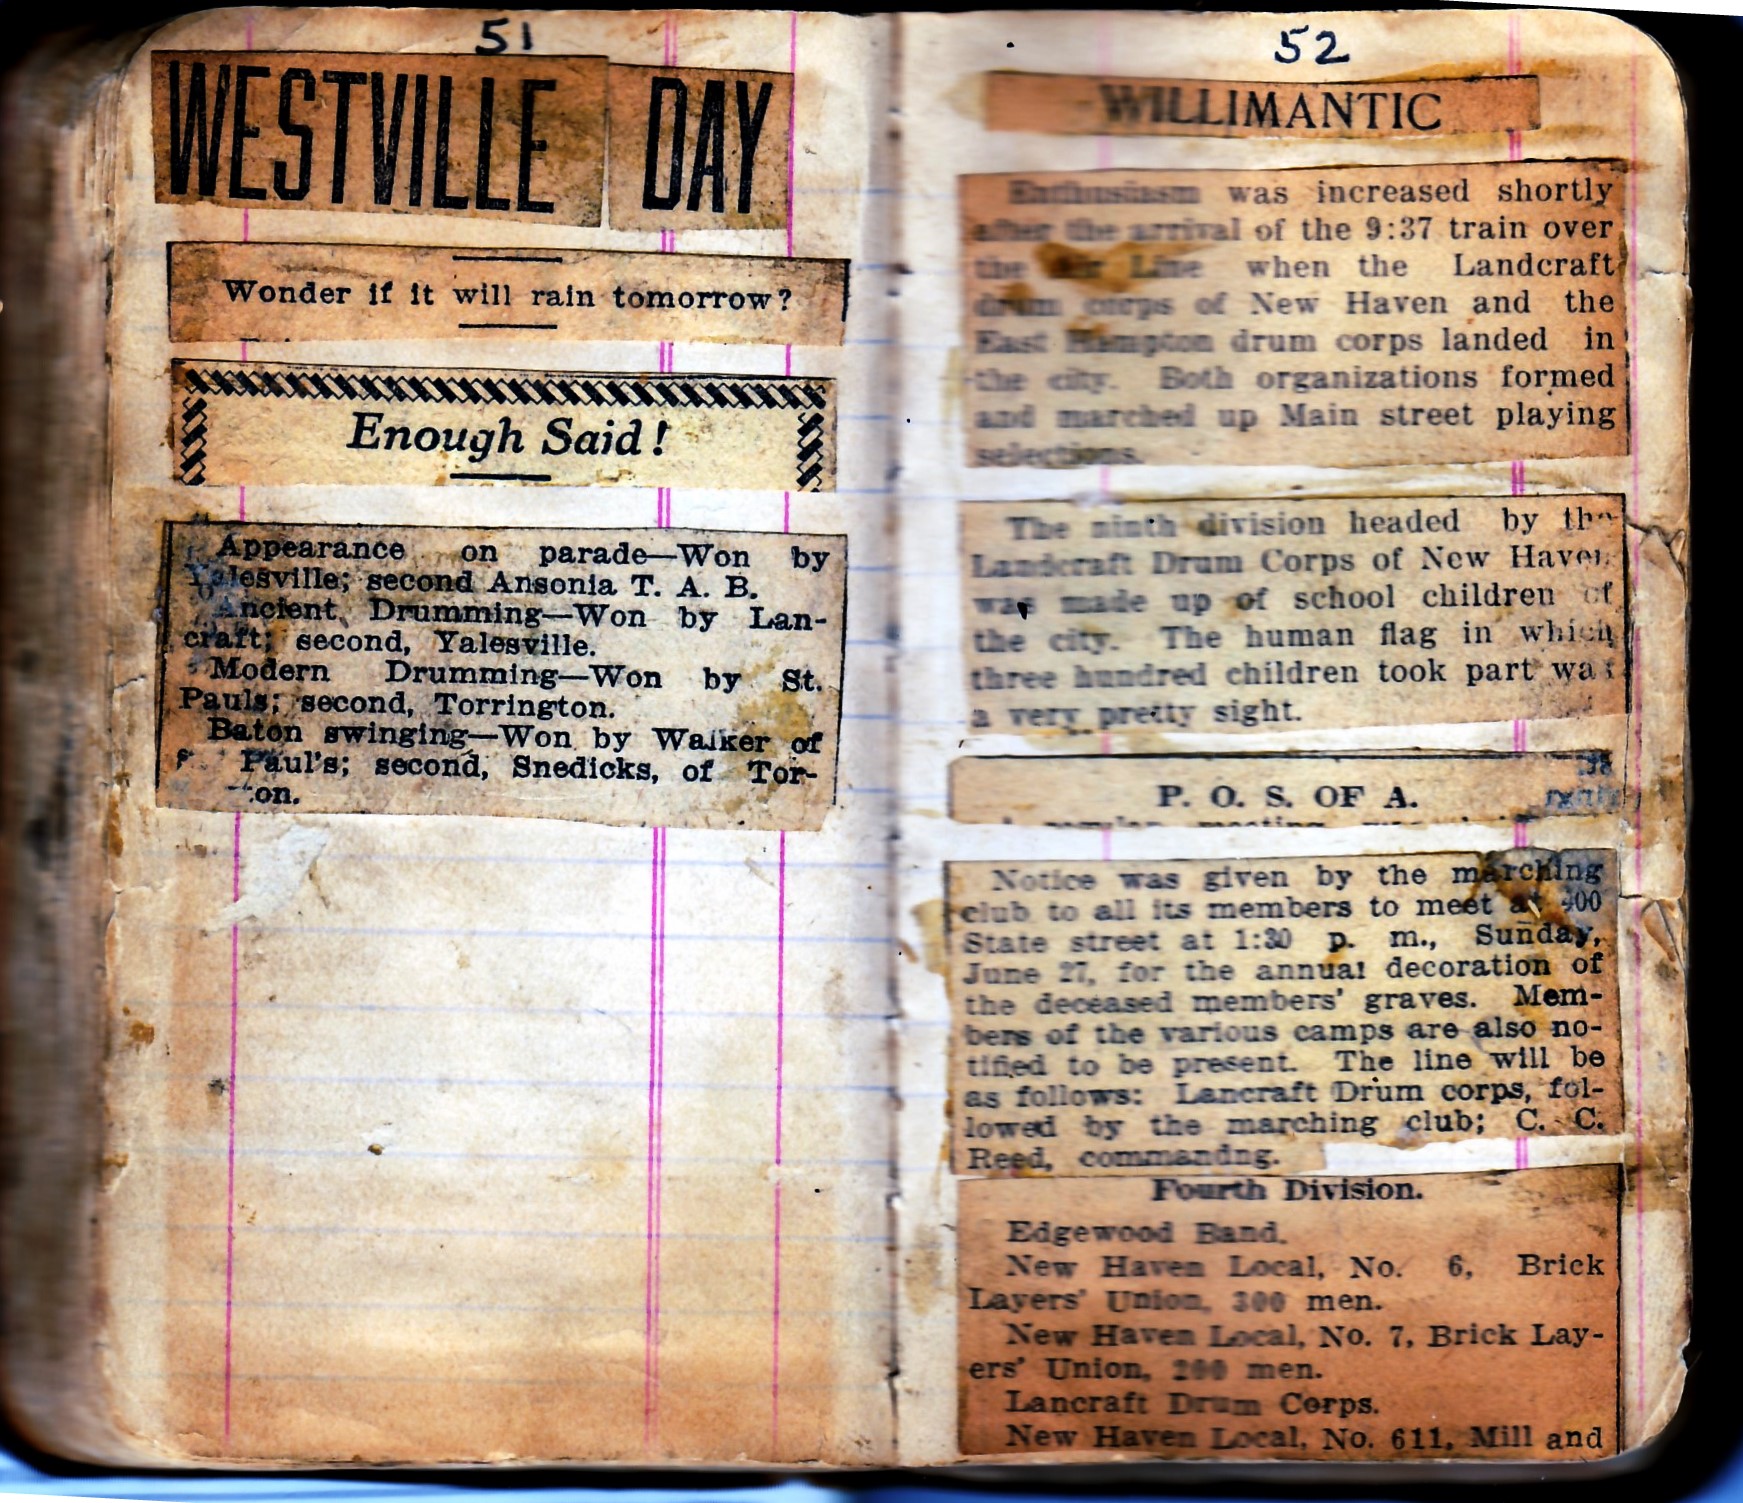 51
WESTVILLE DAY
Wonder if it will rain tomorrow?
Enough Said!
Appearance on parade—Won by
Yalesville; second Ansonia T. A. B.
Ancient Drumming—Won by Lan-
craft; second, Yalesville.
Modern Drumming—Won by St.
Pauls; second, Torrington.
Baton swinging—Won by Walker of
Paul's; second, Snedicks, of Tor-
on.
52
WILLIMANTIC
Enthusiasm was increased shortly
after the arrival of the 9:37 train over
the Air Line when the Landcraft
drum corps of New Haven and the
East Hampton drum corps landed in
the city. Both organizations formed
and marched up Main street playing
selections.
The ninth division headed by the
Landcraft Drum Corps of New Haven
was made up of school children of
the city. The human flag in which
three hundred children took part was
a very pretty sight.
P. O. S. OF A.
Notice was given by the marching
club to all its members to meet at 400
State street at 1:30 p. m., Sunday,
June 27, for the annual decoration of
the deceased members' graves. Mem-
bers of the various camps are also no-
tified to be present. The line will be
as follows: Lancraft Drum corps, fol-
lowed by the marching club; C. C.
Reed, commandng.
Fourth Division.
Edgewood Band.
New Haven Local, No. 6, Brick
Layers' Union, 300 men.
New Haven Local, No. 7, Brick Lay-
ers' Union, 200 men.
Lancraft Drum Corps.
New Haven Local, No. 611, Mill and